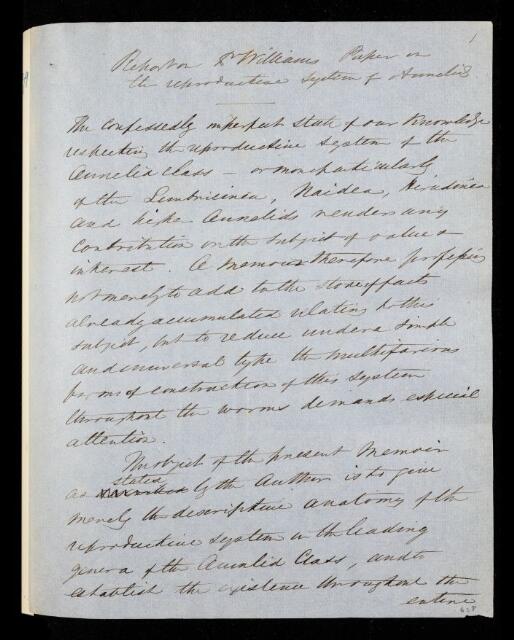 1
Report on Dr Williams Paper on
the reproductive system of Annelids
The confessedly imperfect state of our Knowledge
respecting the reproductive system of the
Annelid class – or more particularly
of the Lumbricinea, Naidea, Hirudinea
and higher Annelids renders any
contribution on the subject of value &
interest. A Memoir therefore professing
not merely to add to the store of facts
already accumulated relating to the
subject, but to reduce under a simple
and universal type the multifarious
forms of construction of this system
throughout the worms demands especial
attention.
The object of the present Memoir
stated
as by the Author is to give
merely the descriptive anatomy of the
reproductive system in the leading
genera of the Annelid Class, and to
establish the existence throughout the
entire